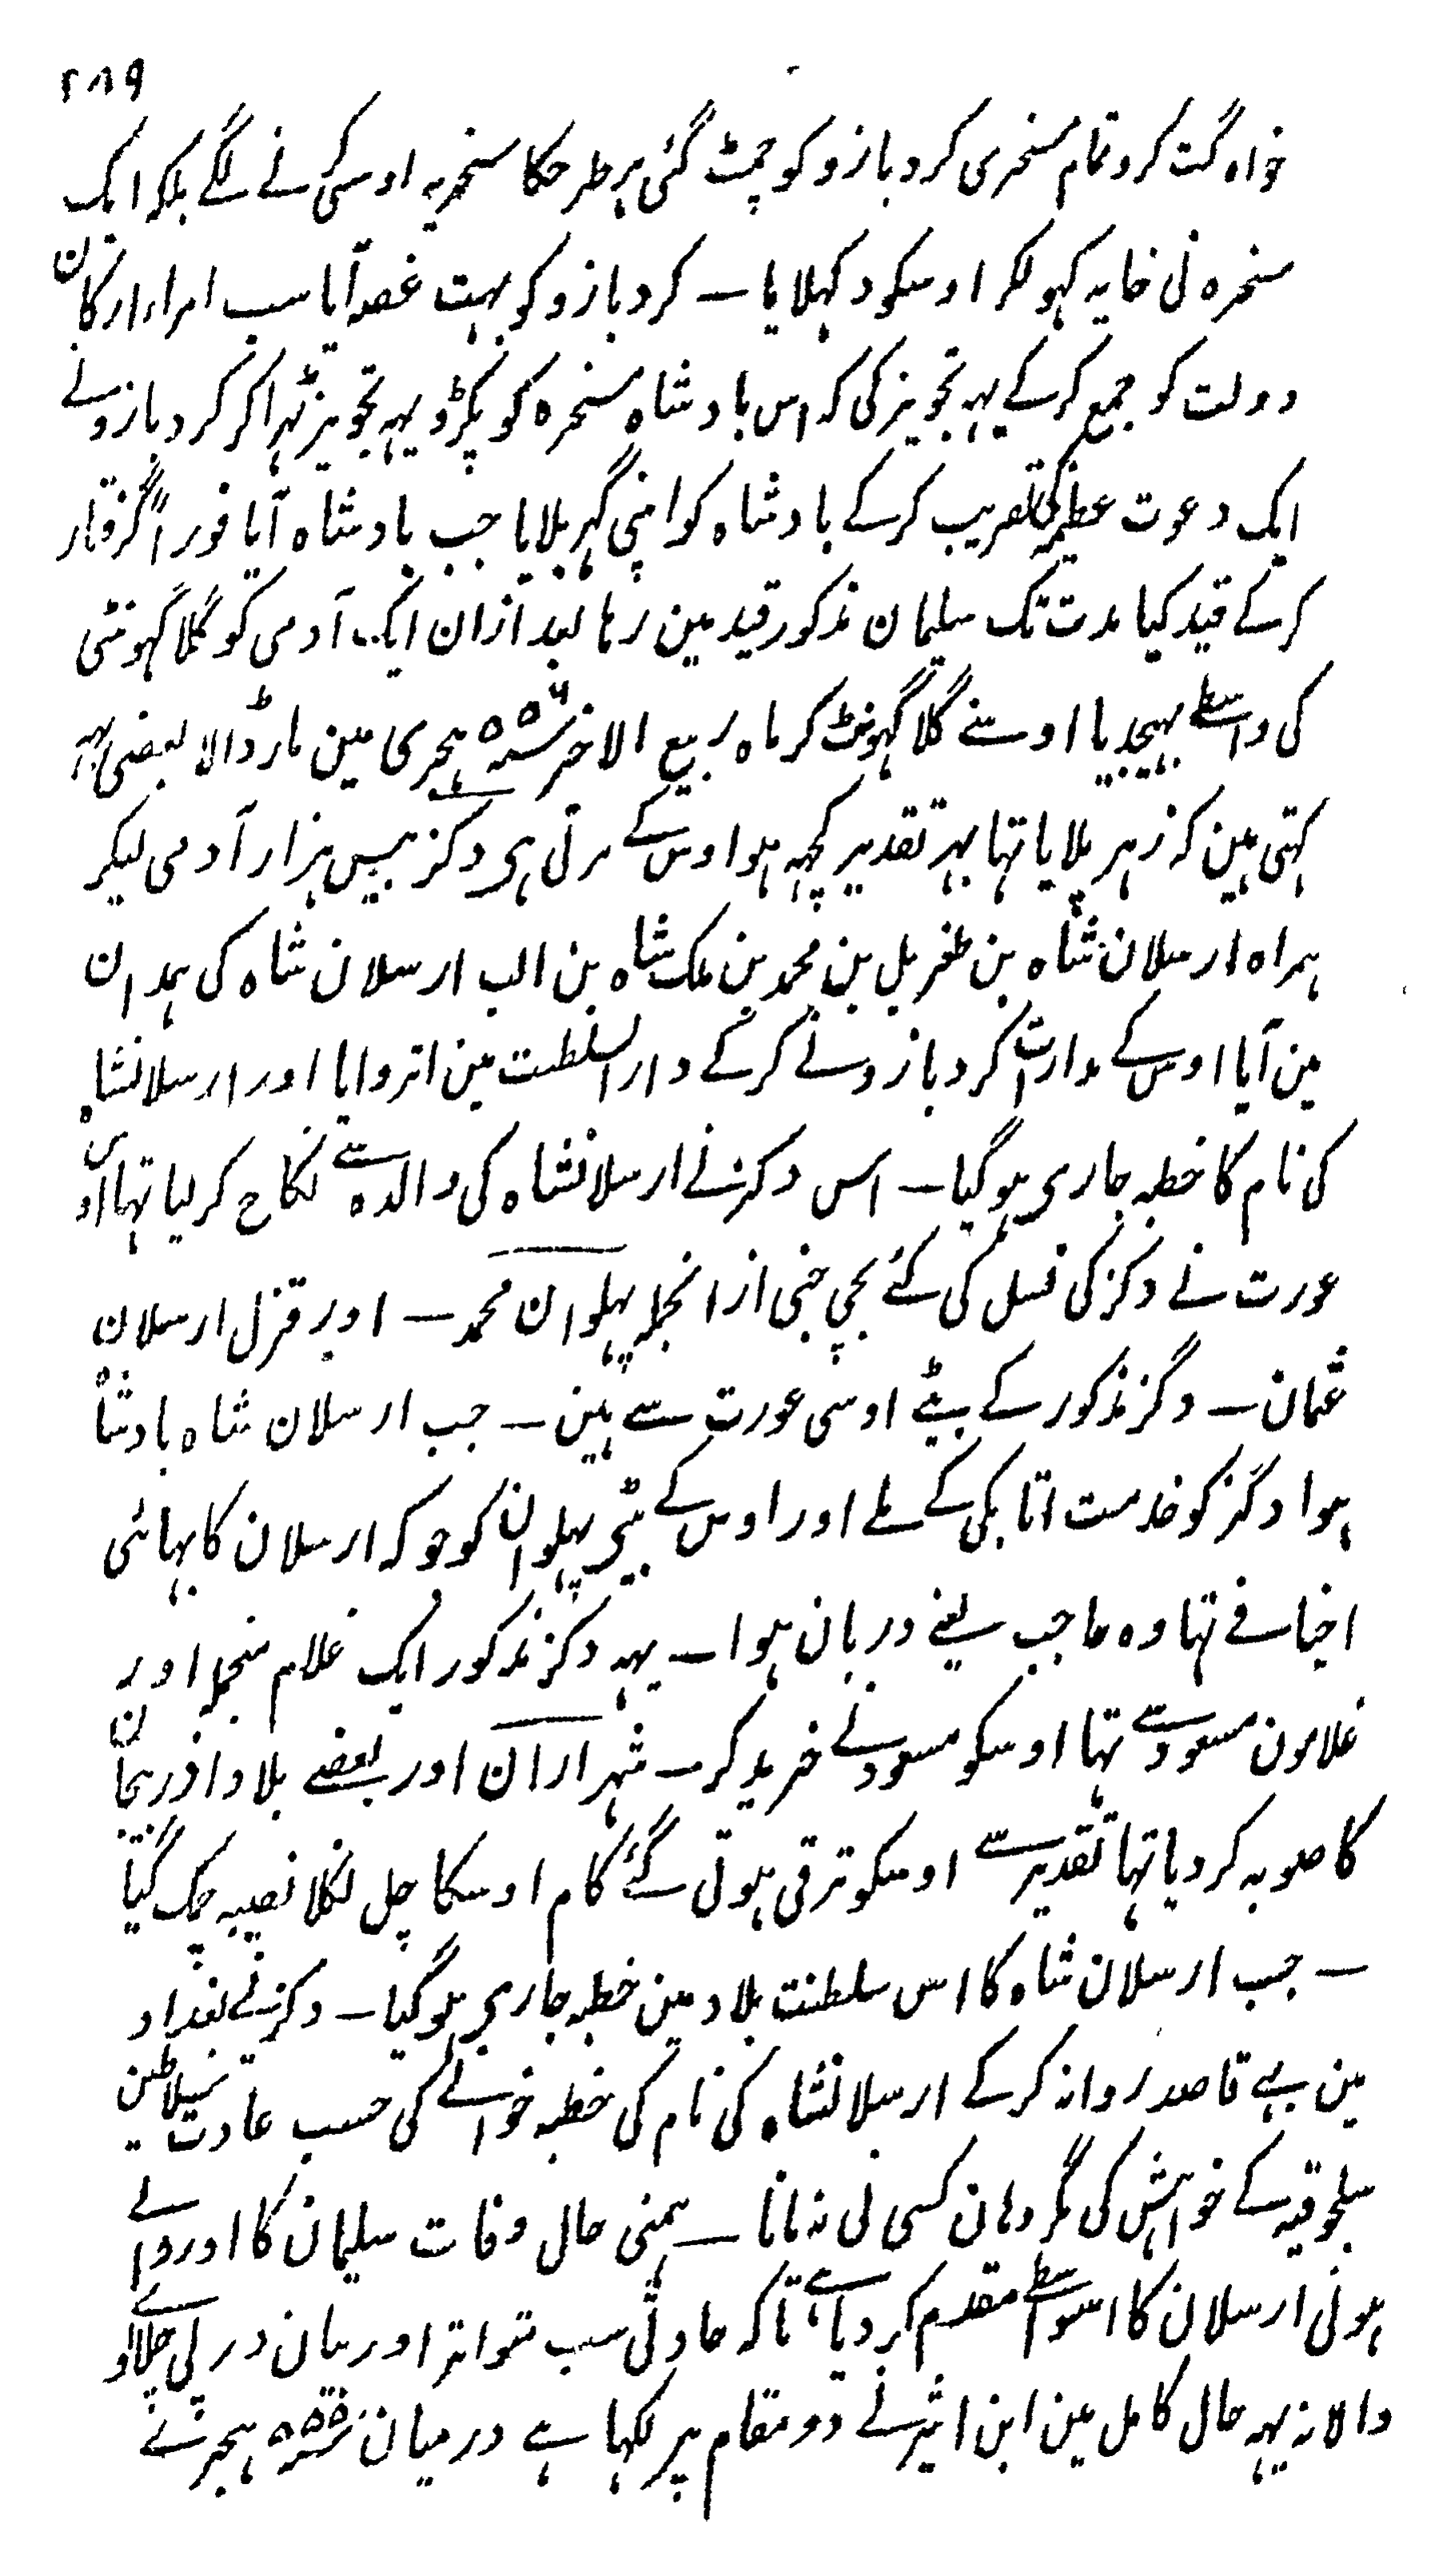 ۲۸۹
خواہ گت کرو تمام مسخری کردبازو کو چمٹ گئی ہر طرحکا سخریہ اوسی کرنے لگے بلکہ ایک
مسخرہ نی خایہ کہولکر اوسکو دکہلایا — کردبازو کو بہت غصہ آیا سب امراء ارکان
دولت کو جمع کرکے یہہ تجویز کی کہ اس بادشاہ مسخرہ کو پکڑو یہہ تجویز ٹہراکر کردبازو نے
ایک دعوت عظیم کی تقریب کرکے بادشاہ کو اپنی گہر بلایا جب بادشاہ آیا فوراً گرفتار
کرکے قید کیا مدت تک سلیمان مذکور قید مین رہا بعد ازان ایک آدمی کو گلا گہونٹی
کی واسطے بہیجدیا اوسنے گلا گہونٹ کر ماہ ربیع الاخر سنہ ۵۵۶ ہجری مین مار ڈالا بعضی یہہ
کہتی ہین کہ زہر پلایا تہا بہر تقدیر کچہہ ہوا اوس کے مرتی ہی دکز بیس ہزار آدمی لیکر
ہمراہ ارسلان شاہ بن طغریل بن محمد بن ملک شاہ بن الب ارسلان شاہ کی ہمدان
مین آیا اوس کے مدارات کردبازو نے کرکے دار السلطنت مین اتروایا اور ارسلانشاہ
کی نام کا خطبہ جاری ہوگیا — اس دکز نے ارسلانشاہ کی والدہ سے نکاح کرلیا تہا اوس
عورت نے دکز کی نسل کی کئے بچی جنی ازانجملہ پہلوان محمد — اور قزل ارسلان
عثمان — دگز مذکور کے بیٹے اوسی عورت سے ہین — جب ارسلان شاہ بادشاہ
ہوا دگز کو خدمت اتابکی کے ملے اور اوس کے بیٹی پہلوان کو جو کہ ارسلان کا بہائی
اخیافے تہا وہ حاجب یعنے دربان ہوا — یہہ دکز مذکور ایک غلام منجملہ اور
غلامون مسعود سے تہا اوسکو مسعود نے خرید کر — شہر اران اور بعضے بلاد اذربیجان
کا صوبہ کر دیا تہا تقدیر سے اوسکو ترقی ہوتی گئے کام اوسکا چل نکلا نصیبہ چمک گیا
— جب ارسلان شاہ کا اس سلطنت بلاد مین خطبہ جاری ہوگیا — دکز نے بغداد
مین بہے قاصد روانہ کرکے ارسلانشاہ کی نام کی خطبہ خوانے کی حسب عادت سلاطین
سلجوقیہ کے خواہش کی مگر وہان کسی نی نہ مانا — ہمنی حال وفات سلیمان کا اور والے
ہونی ارسلان کا اسواسطے مقدم کر دیا ہے تاکہ حادثی سب متواتر اور بیان در پی چلا
والا نہ یہہ حال کامل مین ابن اثیر نے دو مقام پر لکہا ہے درمیان سنہ ۵۵۵ ہجرے